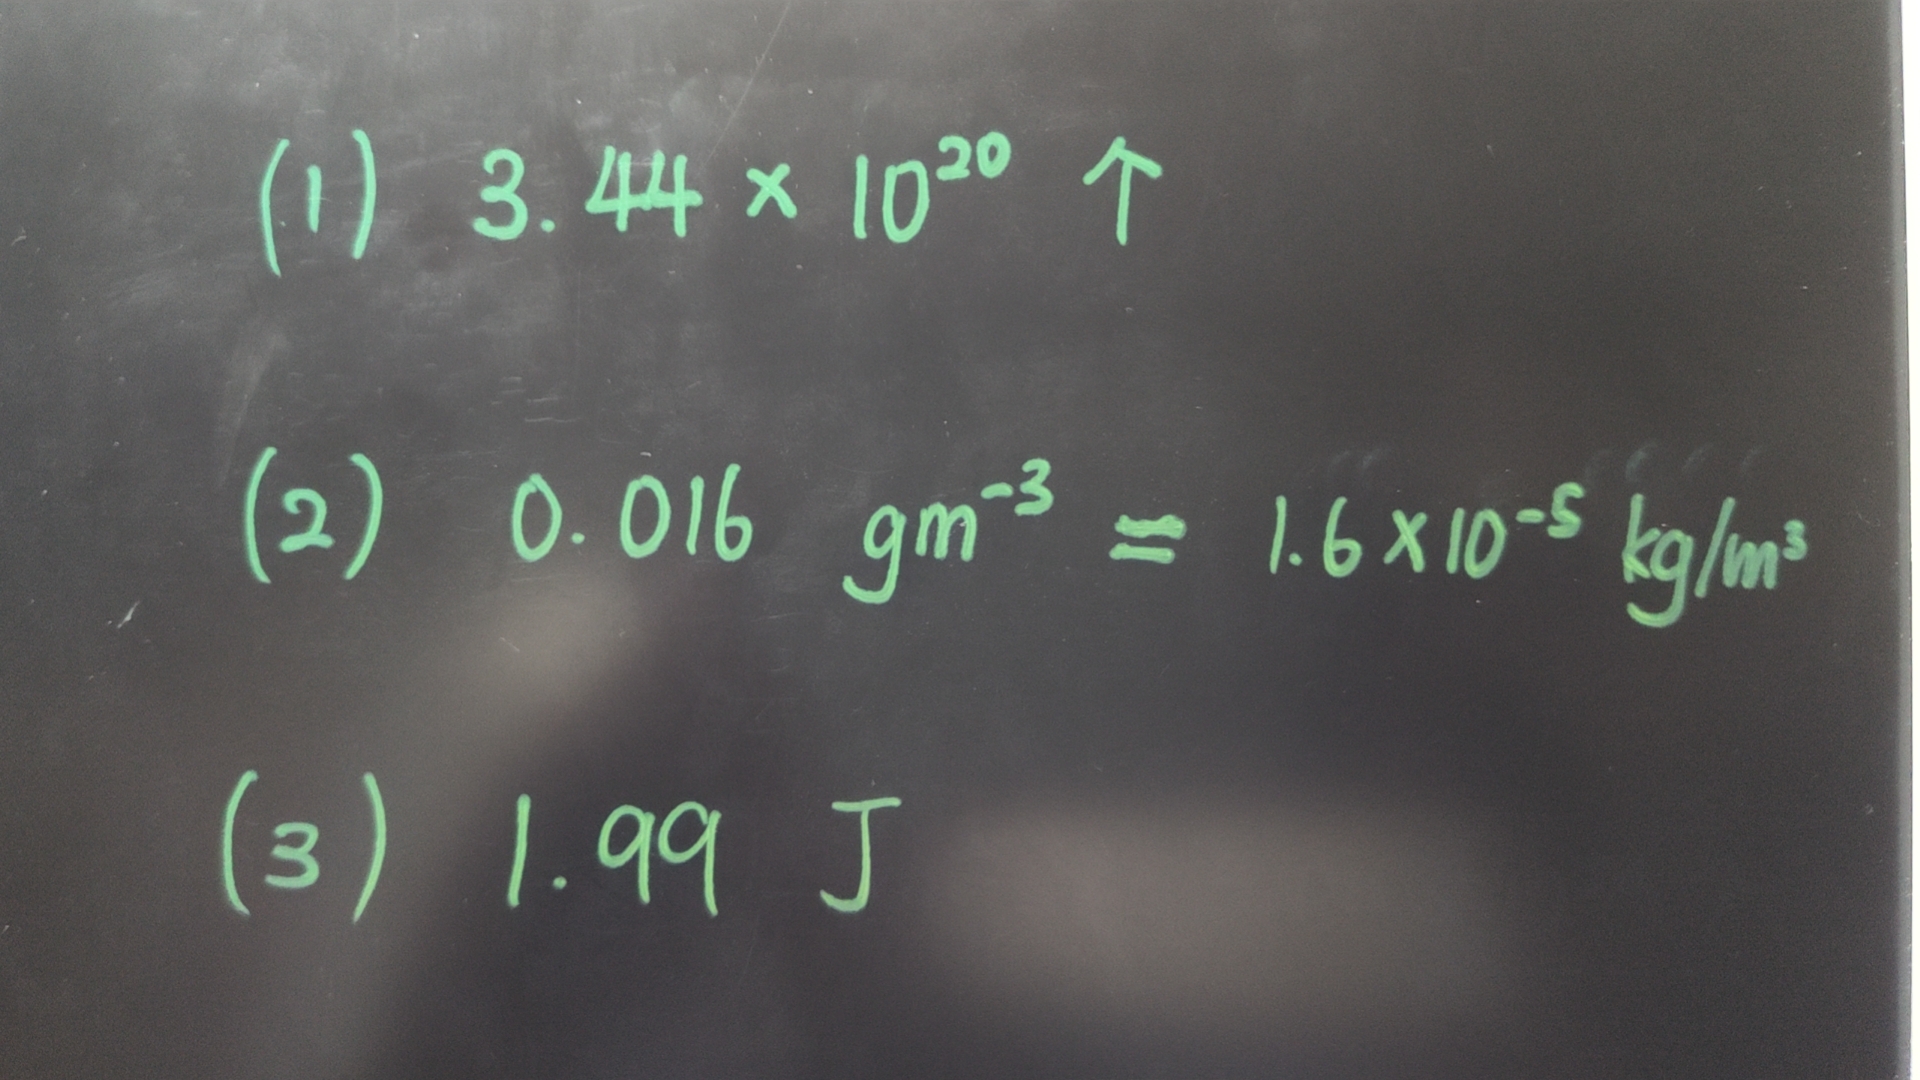 (1) 3.44 × 10²⁰ ↑
(2) 0.016 gm⁻³ = 1.6×10⁻⁵ kg/m³
(3) 1.99 J